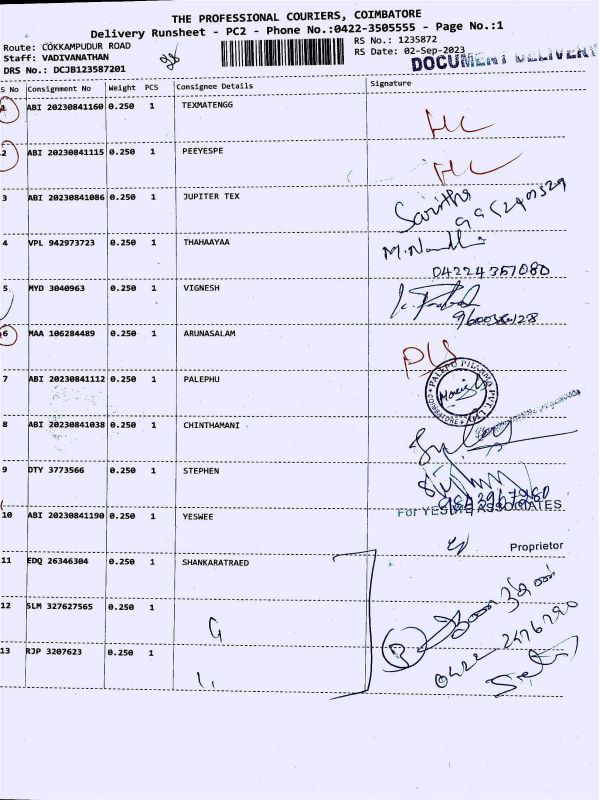 THE PROFESSIONAL COURIERS, COIMBATORE
Delivery Runsheet - PC2 - Phone No.:0422-3505555 - Page No.:1
Route: COKKAMPUDUR ROAD
RS No.: 1235872
Staff: VADIVANATHAN
RS Date: 02-Sep-2023
DOCUMENT DELIVERY
DRS No.: DCJB123587201
S No Consignment No Weight PCS Consignee Details Signature
1 ABI 20230841160 0.250 1 TEXMATENGG
2 ABI 20230841115 0.250 1 PEEYESPE
3 ABI 20230841086 0.250 1 JUPITER TEX
4 VPL 942973723 0.250 1 THAHAAYAA M.Nandhi
04224367080
5 MYD 3040963 0.250 1 VIGNESH
6 MAA 106284489 0.250 1 ARUNASALAM
7 ABI 20230841112 0.250 1 PALEPHU
PALEPU PHARMA PVT. LTD. COIMBATORE
8 ABI 20230841038 0.250 1 CHINTHAMANI
9 DTY 3773566 0.250 1 STEPHEN
10 ABI 20230841190 0.250 1 YESWEE
For ASSOCIATES
Proprietor
11 EDQ 26346304 0.250 1 SHANKARATRAED
12 SLM 327627565 0.250 1
0422 2476290
13 RJP 3207623 0.250 1